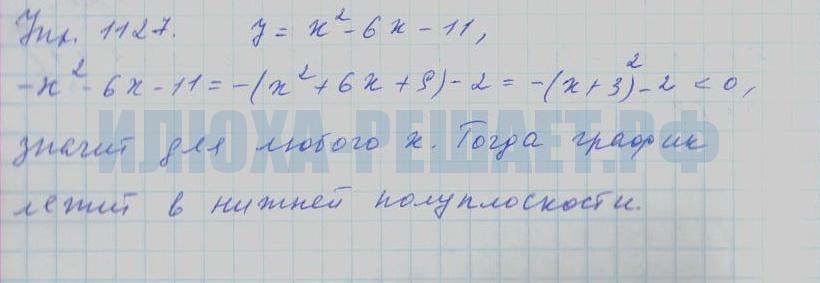 Упр. 1127. y = x² - 6x - 11,
-x² - 6x - 11 = -(x² + 6x + 9) - 2 = -(x + 3)² - 2 < 0,
ИЛЮХА-РЕШАЕТ.РФ
значит для любого x. Тогда график
лежит в нижней полуплоскости.